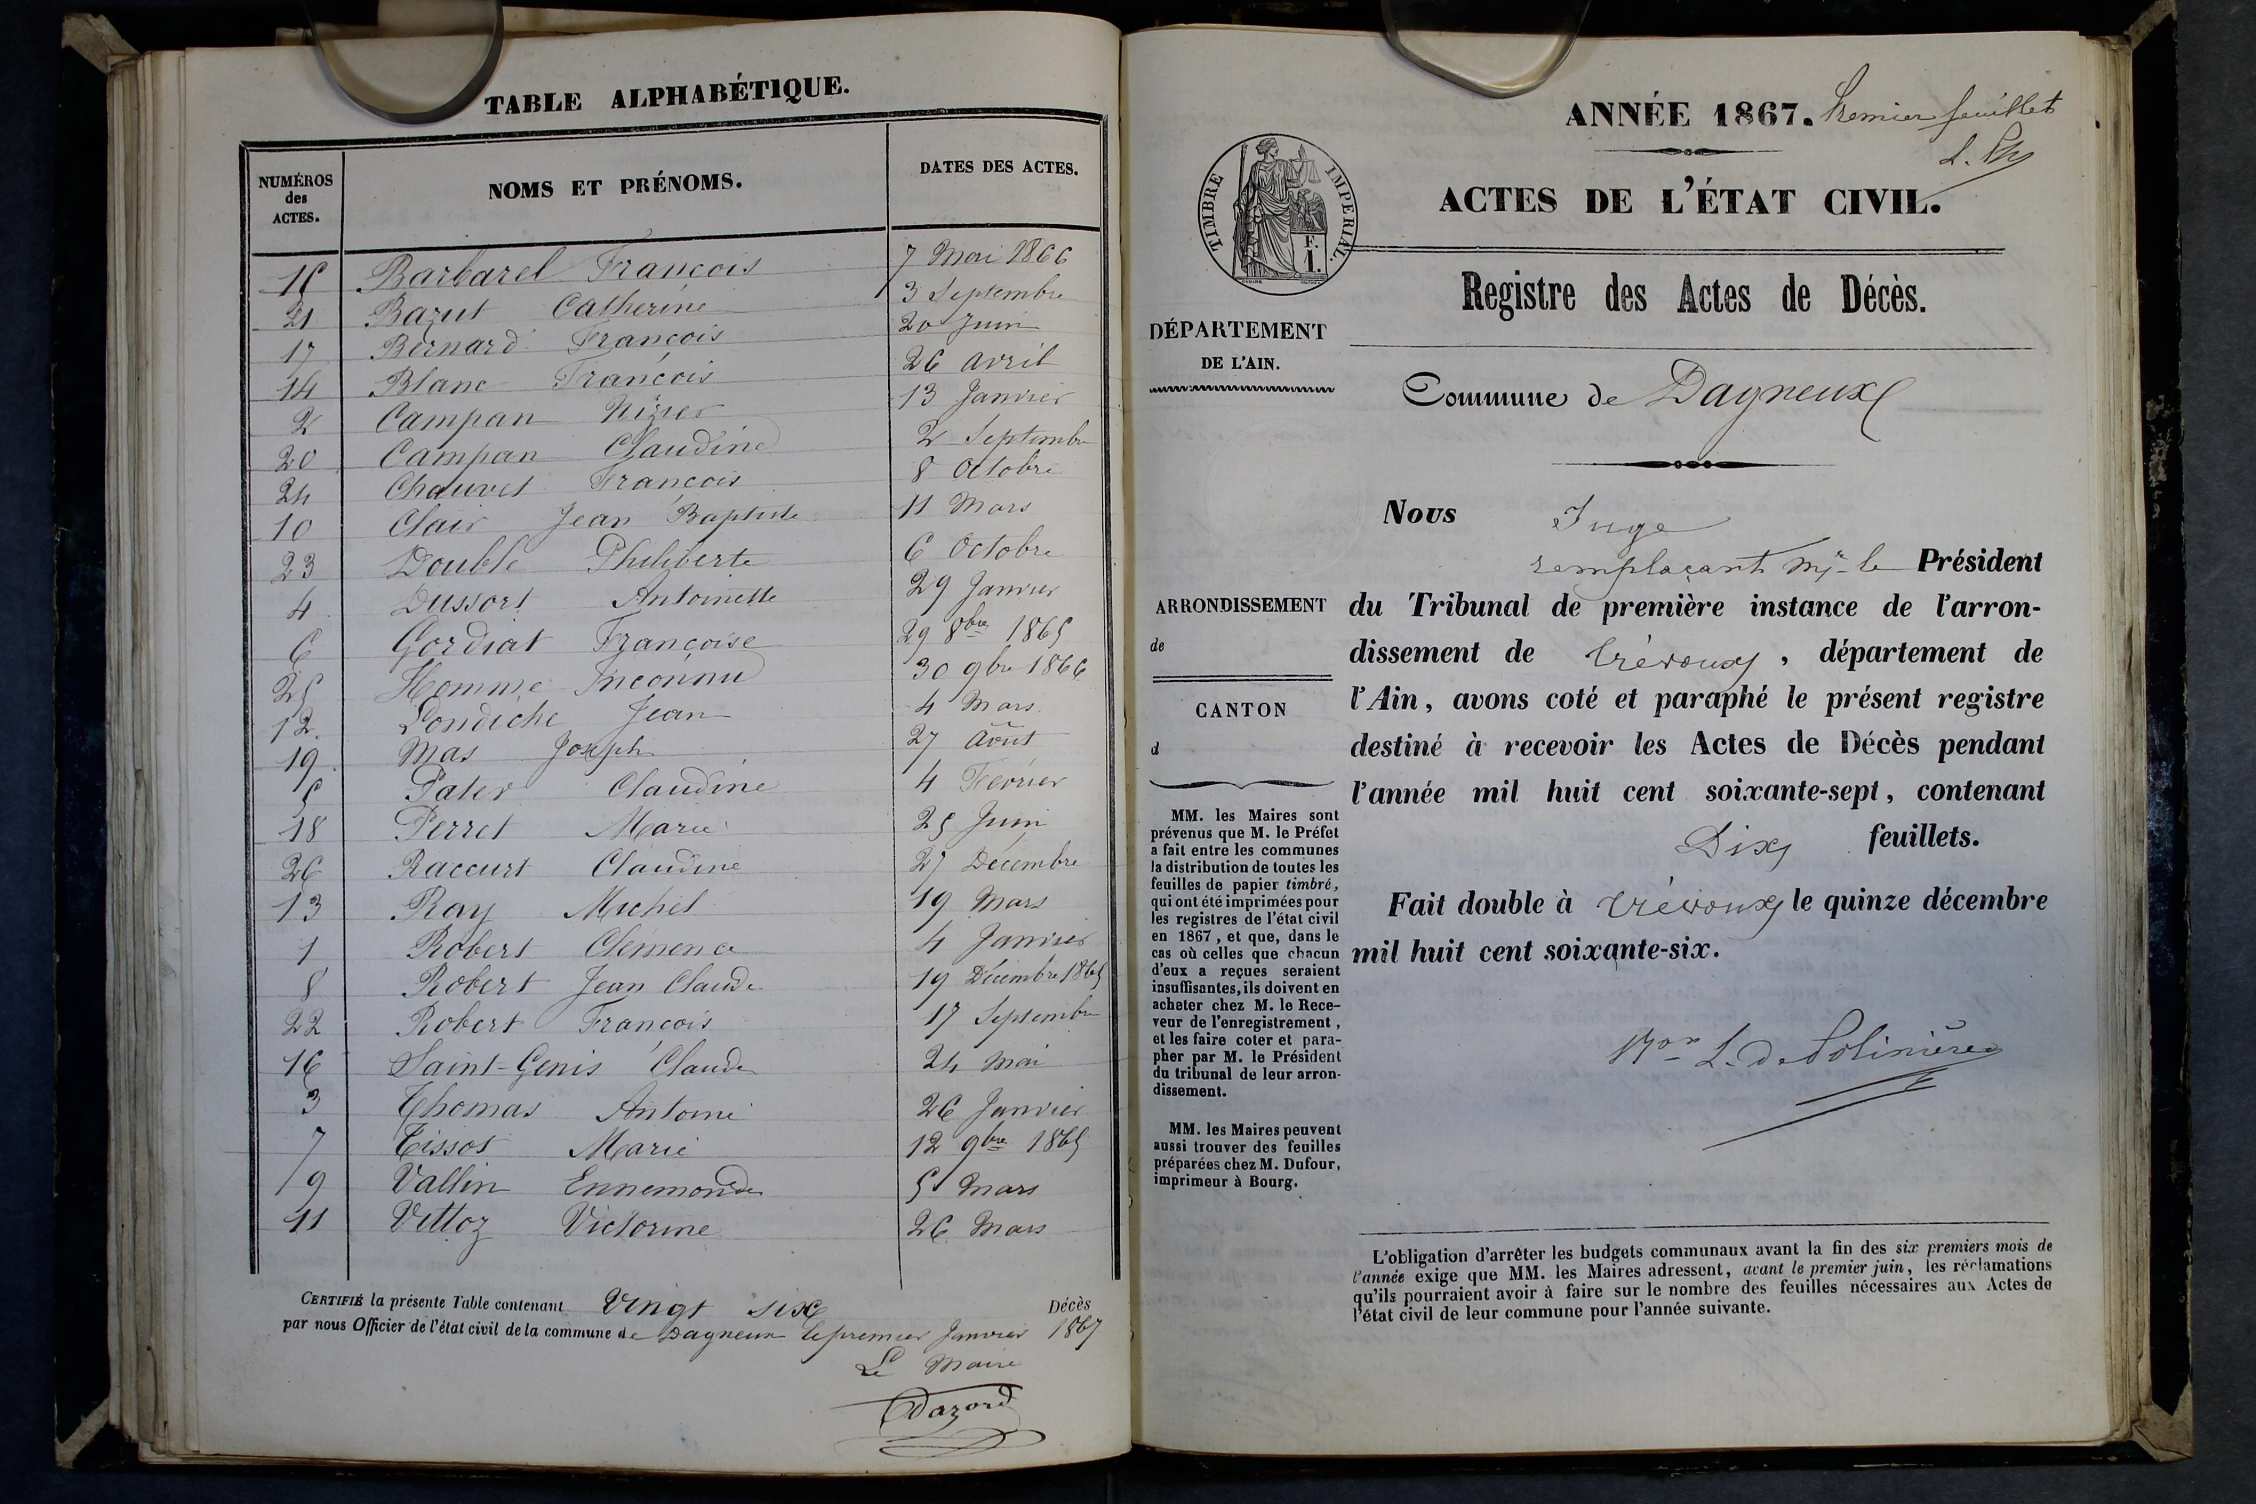 TABLE ALPHABÉTIQUE.
NUMÉROS des ACTES. NOMS ET PRÉNOMS. DATES DES ACTES.
15 Barbarel François 7 Mai 1866
21 Bazut Catherine 3 Septembre
17 Bernard François 20 Juin
14 Blanc François 26 avril
2 Campan Nizier 13 Janvier
20 Campan Claudine 2 Septembre
24 Chauvet François 8 Octobre
10 Clair Jean Baptiste 11 Mars
23 Double Philiberte 6 Octobre
4 Dussort Antoinette 29 Janvier
6 Gordiat Françoise 29 8bre 1865
25 Homme Inconnu 30 9bre 1866
12. Londiche Jean 4 Mars
19 Mas Joseph 27 Août
5 Pater Claudine 4 Février
18 Perret Marie 25 Juin
26 Raccurt Claudine 27 Décembre
13 Ray Michel 19 Mars
1 Robert Clémence 4 Janvier
8 Robert Jean Claude 19 Décembre 1865
22 Robert François 17 Septembre
16 Saint-Genis Claude 24 Mai
3 Thomas Antoine 26 Janvier
7 Tissot Marie 12 9bre 1865
9 Vallin Ennemonde 5 Mars
11 Vettoz Victorine 26 Mars
CERTIFIÉ la présente Table contenant Vingt six Décès
par nous Officier de l'état civil de la commune de Dagneux le premier Janvier 1867
Le Maire
Dazord
ANNÉE 1867. Premier feuillet
ACTES DE L'ÉTAT CIVIL.
TIMBRE IMPERIAL.
F.
1.
Registre des Actes de Décès.
DÉPARTEMENT
DE L'AIN.
Commune de Dagneux
ARRONDISSEMENT
de
CANTON
d
MM. les Maires sont
prévenus que M. le Préfet
a fait entre les communes
la distribution de toutes les
feuilles de papier timbré,
qui ont été imprimées pour
les registres de l'état civil
en 1867, et que, dans le
cas où celles que chacun
d'eux a reçues seraient
insuffisantes, ils doivent en
acheter chez M. le Rece-
veur de l'enregistrement,
et les faire coter et para-
pher par M. le Président
du tribunal de leur arron-
dissement.
MM. les Maires peuvent
aussi trouver des feuilles
préparées chez M. Dufour,
imprimeur à Bourg.
Nous Juge
remplaçant Mr le Président
du Tribunal de première instance de l'arron-
dissement de Trévoux, département de
l'Ain, avons coté et paraphé le présent registre
destiné à recevoir les Actes de Décès pendant
l'année mil huit cent soixante-sept, contenant
Dix feuillets.
Fait double à Trévoux le quinze décembre
mil huit cent soixante-six.
L. de Polinière
L'obligation d'arrêter les budgets communaux avant la fin des six premiers mois de
l'année exige que MM. les Maires adressent, avant le premier juin, les réclamations
qu'ils pourraient avoir à faire sur le nombre des feuilles nécessaires aux Actes de
l'état civil de leur commune pour l'année suivante.